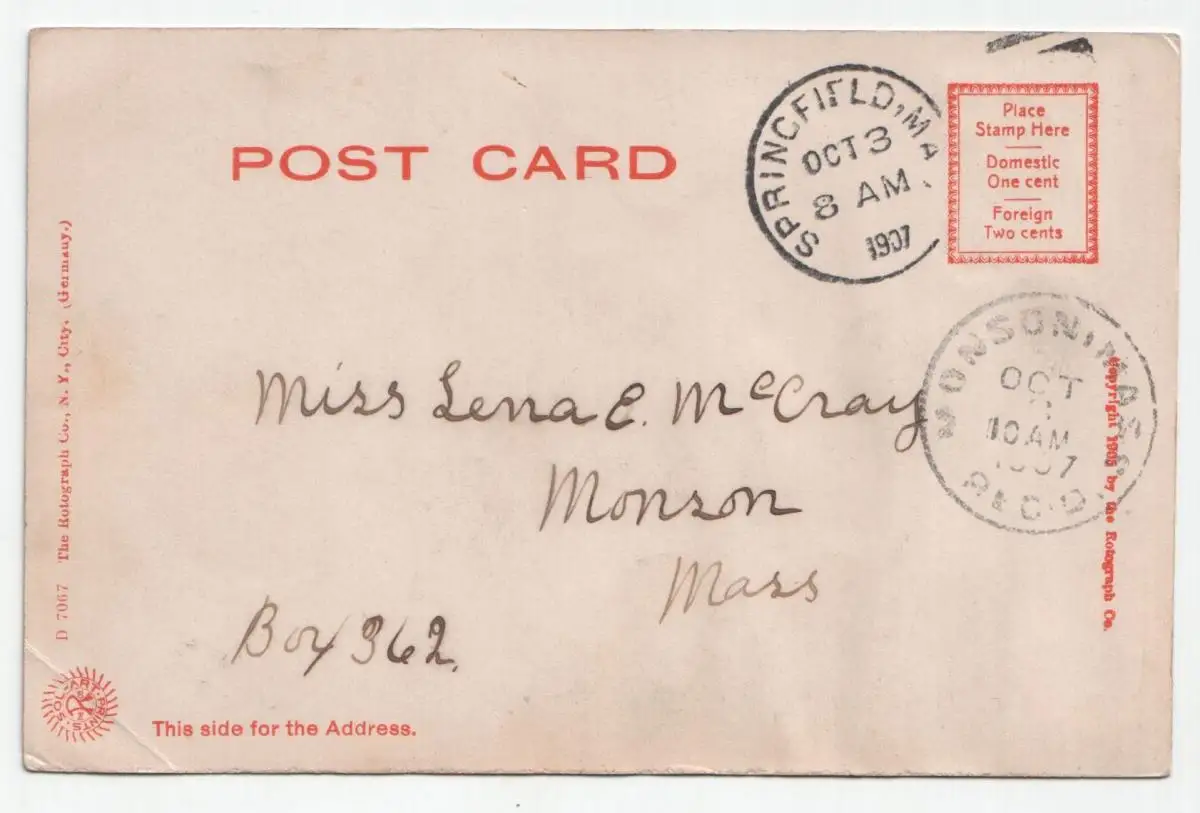 POST CARD
SPRINGFIELD, MA
OCT 3
8 AM
1907
Place
Stamp Here
Domestic
One cent
Foreign
Two cents
MONSON, MASS
OCT
10 AM
1907
REC'D.
Miss Lena E. McCray
Monson
Mass
Box 362.
D 7067 The Rotograph Co., N. Y., City. (Germany.)
Copyright 1905 by the Rotograph Co.
SOL-ART PRINTS
This side for the Address.